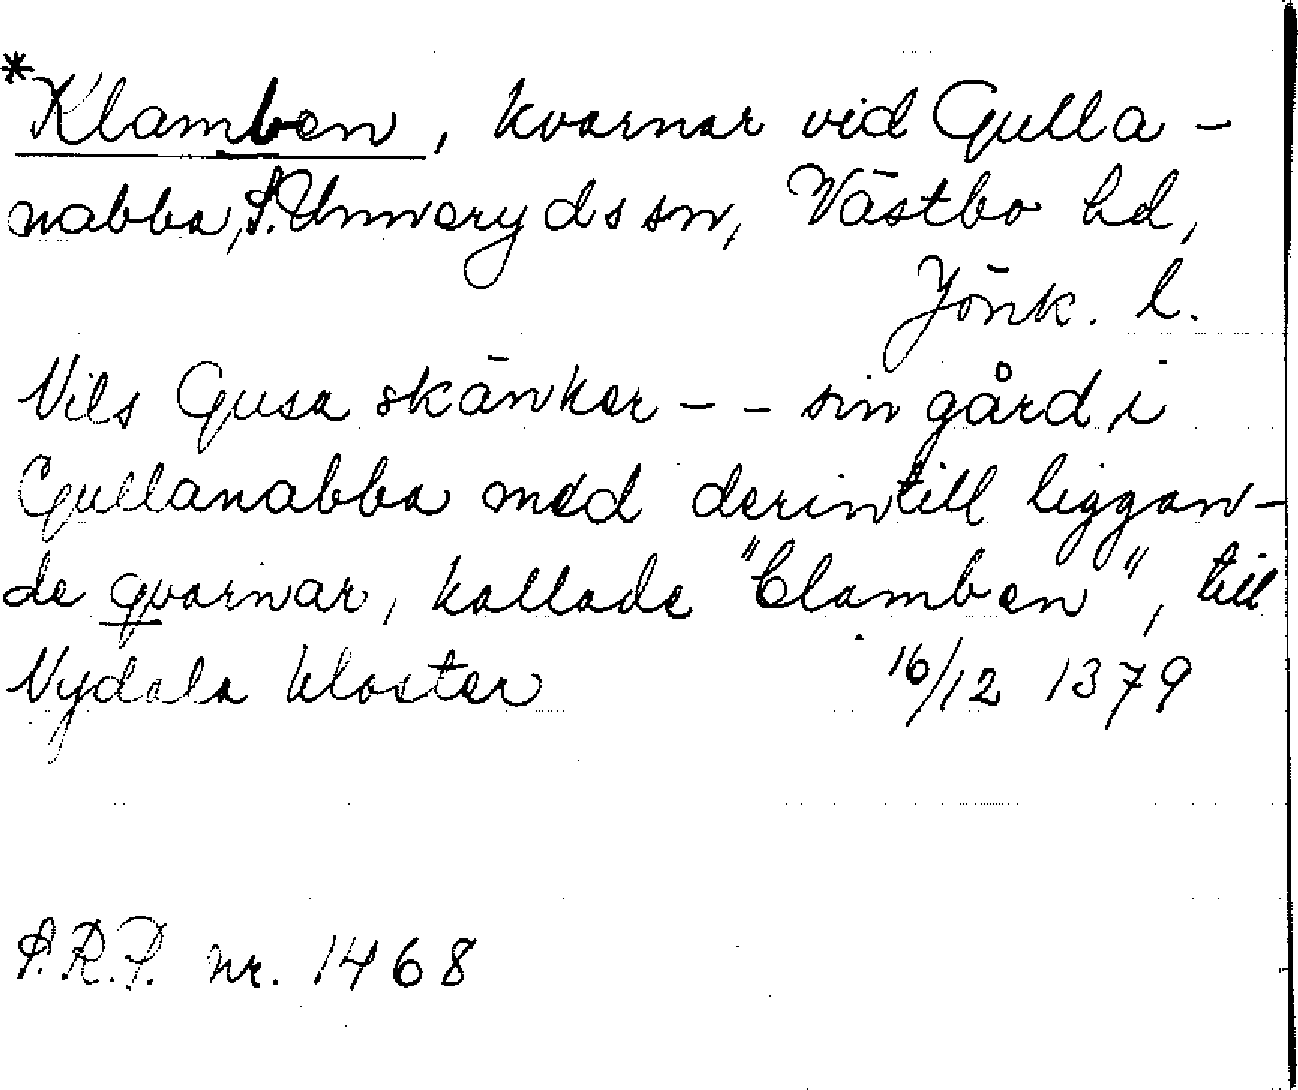 *Klamben, kvarnar vid Gulla-
nabba, S. Unnaryds sn, Västbo hd,
Jönk. l.
Nils Gusa skänker -- sin gård i
Gullanabba med derintill liggan-
de qvarnar, kallade "Clamben", till
Nydala kloster 16/12 1379
S.R.P. nr. 1468